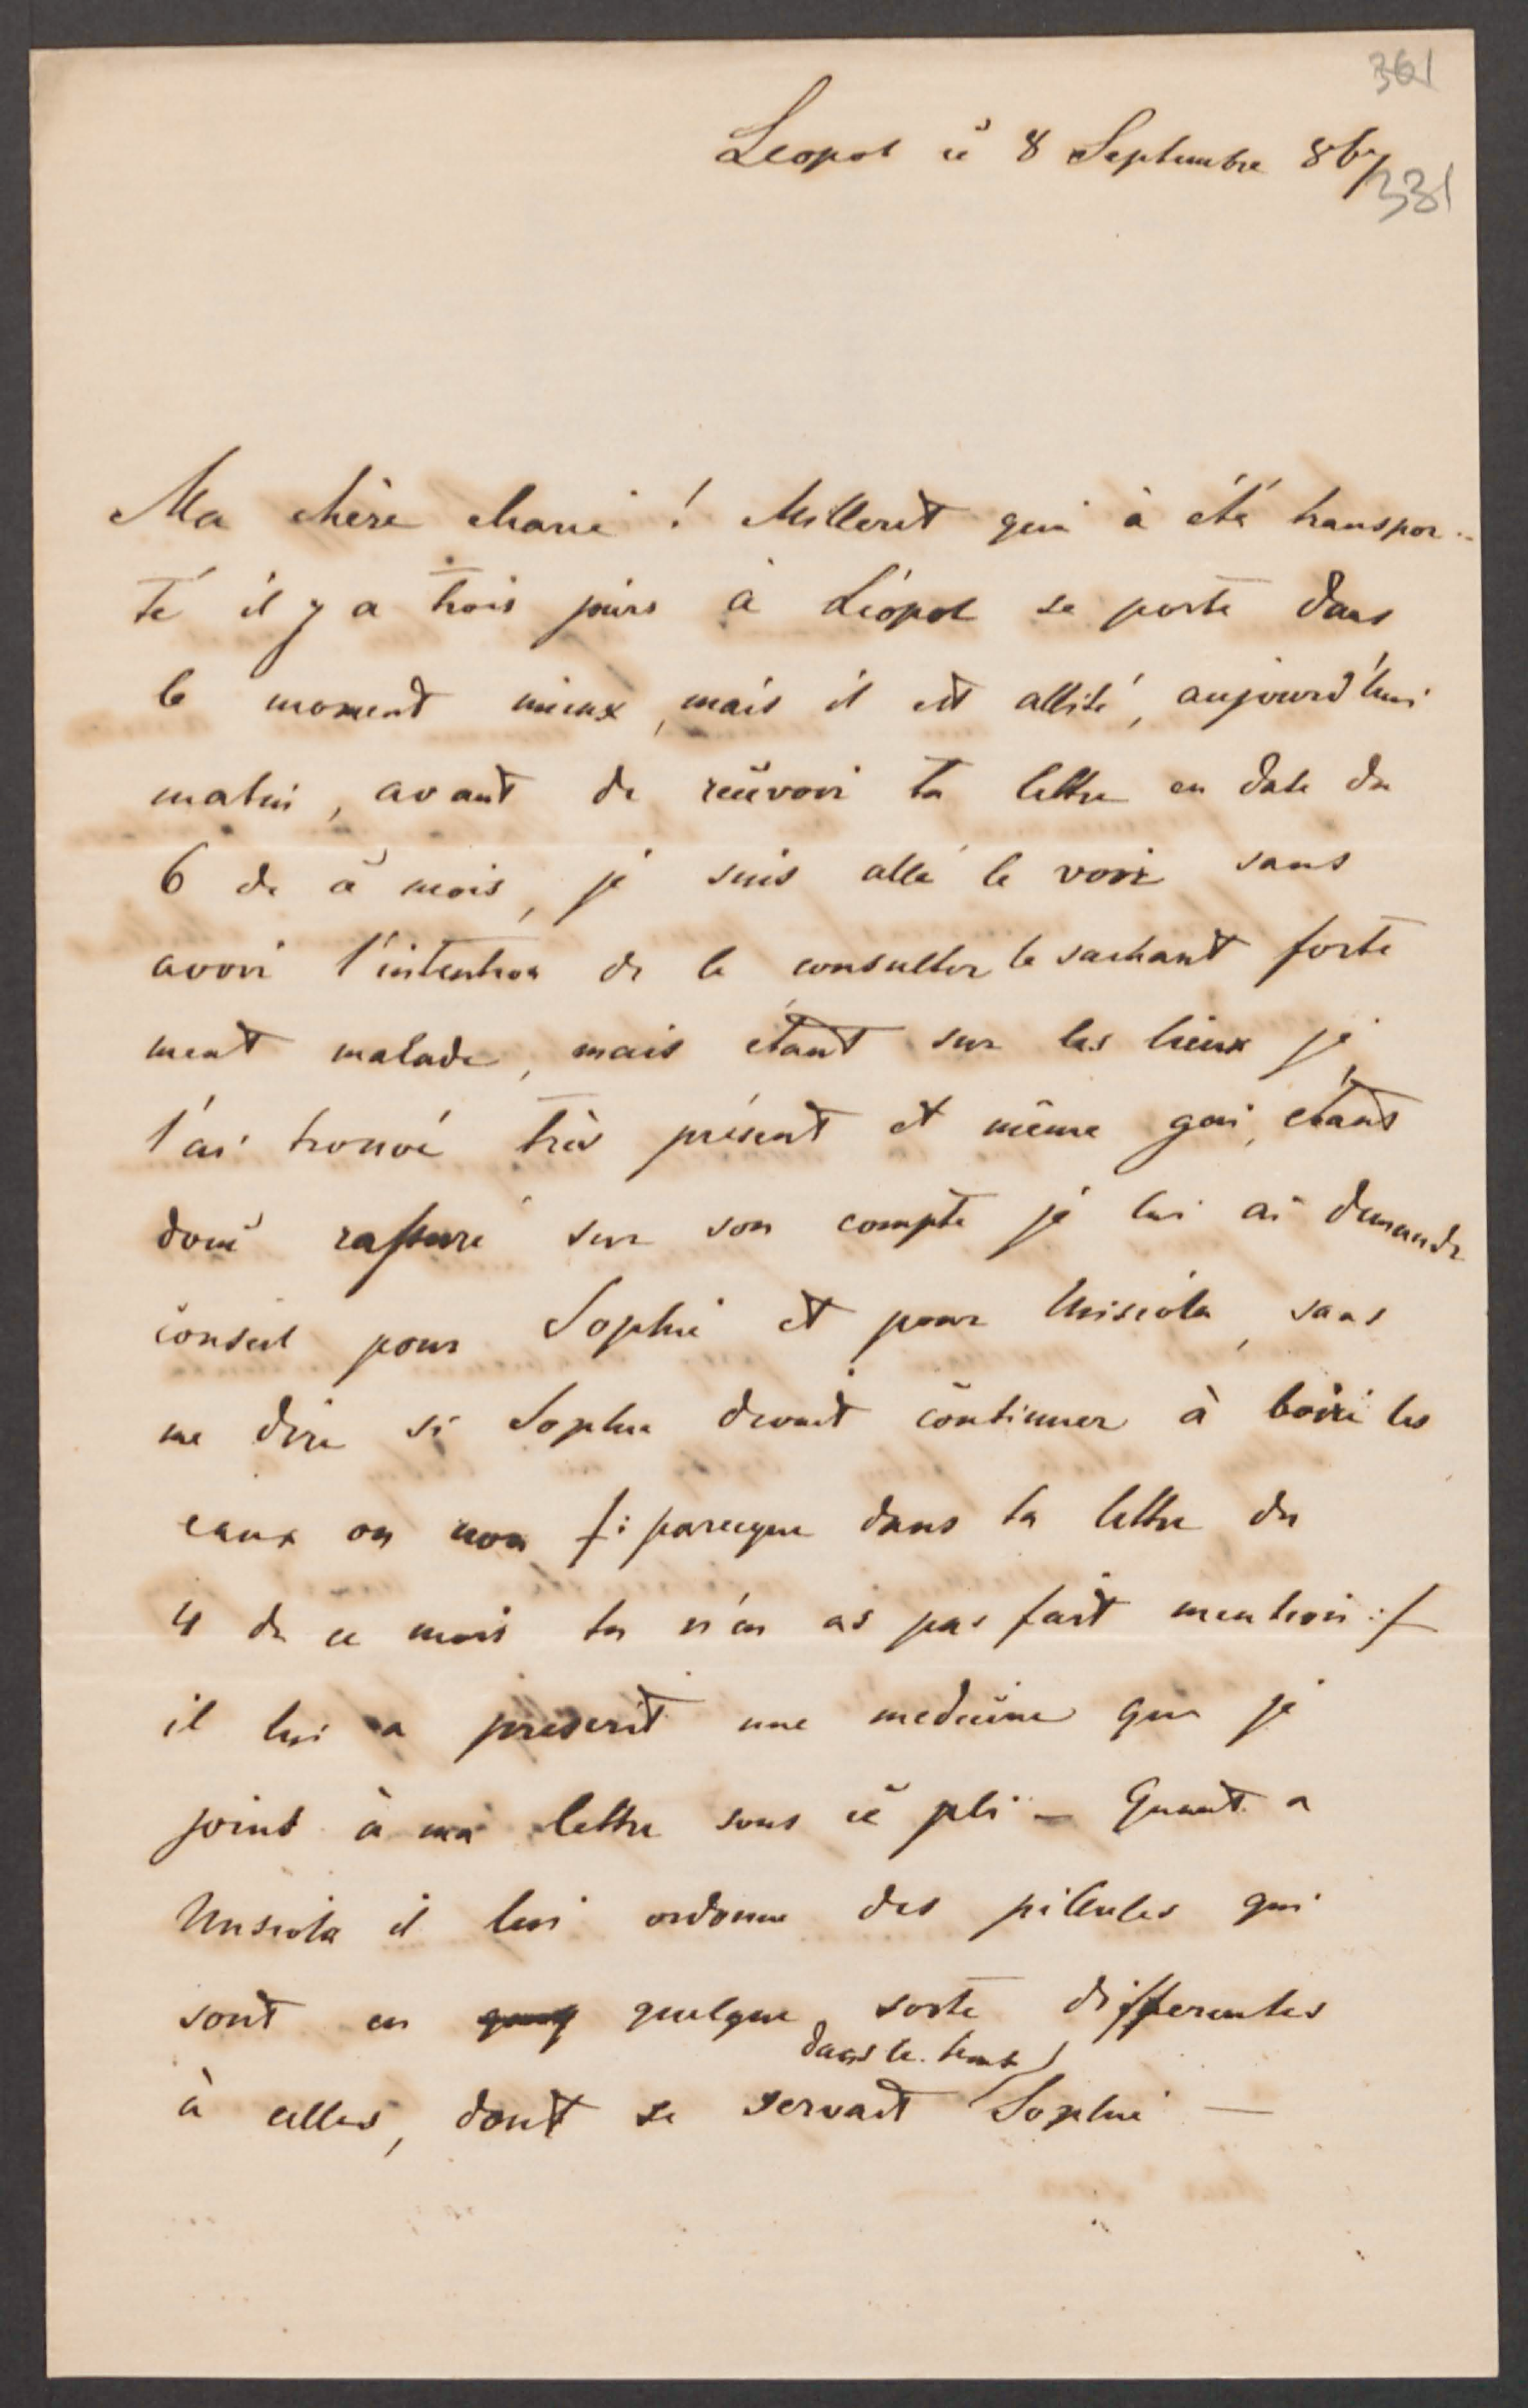 361
Leopol ce 8 Septembre 867
331
Ma chère Marie ! Milleret qui à été transpor-
té il y a trois jours à Léopol se porte dans
le moment mieux, mais il est allité, aujourd'hui
matin, avant de reçevoir ta lettre en date du
6 de ce mois, je suis allé le voir sans
avoir l'intention de le consulter le sachant forte
ment malade, mais étant sur les lieux je
l'ai trouvé très présent et même gai, étant
donc rassuré sur son compte je lui ai demandé
conseil pour Sophie et pour Unisiola, sans
me dire si Sophie devait continuer à boire les
eaux ou non /: parceque dans ta lettre du
4 de ce mois tu n'en as pas fait mention :/
il lui a préscrit une medecine que je
joint à ma lettre sous ce pli – Quant a
Unisiola il lui ordonne des pillules qui
sont en quelque sorte differentes
dans le tems
à celles, dont se servait Sophie —